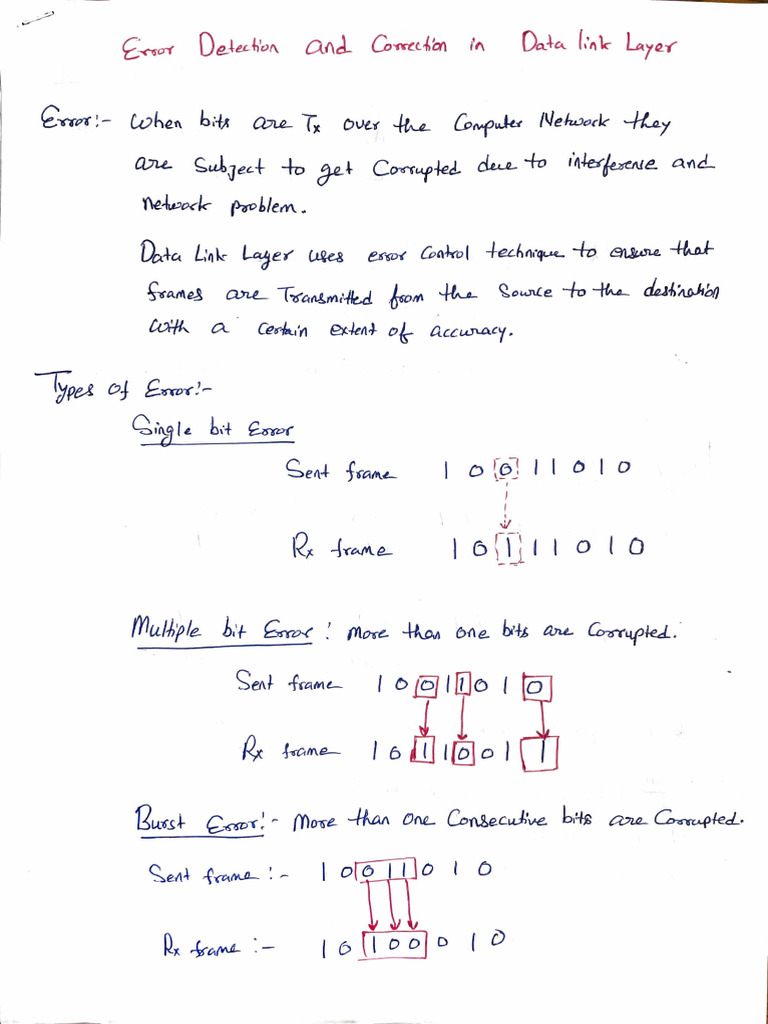 Error Detection and Correction in Data link Layer
Error:- When bits are Tx over the Computer Network they
are Subject to get Corrupted due to interference and
network problem.
Data Link Layer uses error Control technique to ensure that
frames are Transmitted from the Source to the destination
with a certain extent of accuracy.
Types of Error:-
Single bit Error
Sent frame 1 0 0 1 1 0 1 0
Rx frame 1 0 1 1 1 0 1 0
Multiple bit Error : More than one bits are Corrupted.
Sent frame 1 0 0 1 1 0 1 0
Rx frame 1 0 1 1 0 0 1 1
Burst Error:- More than one Consecutive bits are Corrupted.
Sent frame :- 1 0 0 1 1 0 1 0
Rx frame :- 1 0 1 0 0 0 1 0